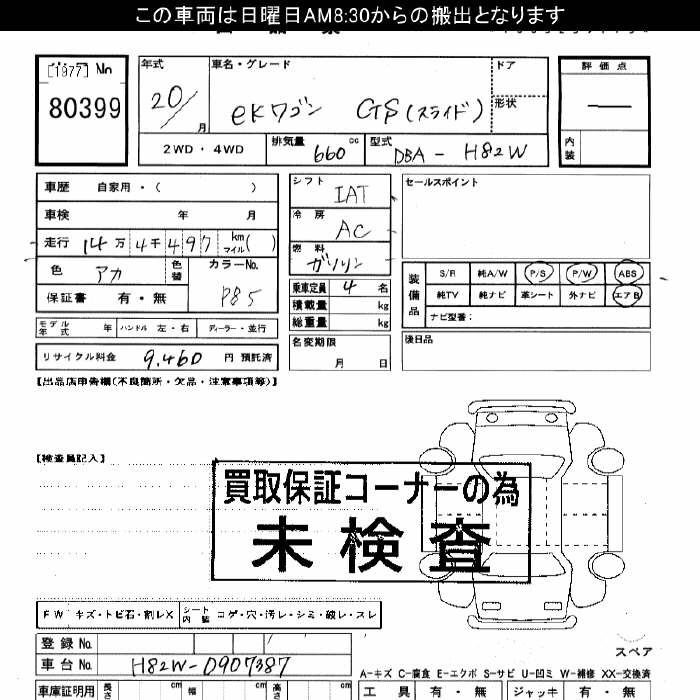 この車両は日曜日AM8:30からの搬出となります
[1977] No
80399
年式
20/
月
車名・グレード
eKワゴン GS(スライド)
ドア
形状
評価点
―
内装
2WD・4WD
排気量
660 cc
型式
DBA - H82W
車歴 自家用・( )
車検 年 月
走行 14万4千497 km マイル( )
色 アカ 色替
カラーNo.
P85
保証書 有・無
モデル年式 年 ハンドル 左・右 ディーラー・並行
リサイクル料金 9,460 円 預託済
シフト
IAT
冷房
AC
燃料
ガソリン
乗車定員 4 名
積載量 kg
総重量 kg
名変期限
月 日
セールスポイント
装備品
S/R 純A/W P/S P/W ABS
純TV 純ナビ 革シート 外ナビ エアB
ナビ型番:
後日品
【出品店申告欄(不良箇所・欠品・注意事項等)】
【検査員記入】
買取保証コーナーの為
未検査
FW キズ・トビ石・割レX シート内装 コゲ・穴・汚レ・シミ・破レ・スレ
登録No.
車台No. H82W-0907387
スペア
A-キズ C-腐食 E-エクボ S-サビ U-凹ミ W-補修 XX-交換済
車庫証明用 長さ cm 幅 cm 高さ cm
工具 有・無 ジャッキ 有・無